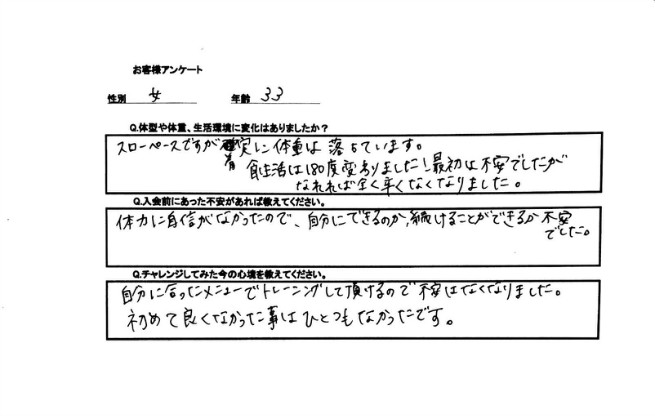 お客様アンケート
性別 女 年齢 33
Q.体型や体重、生活環境に変化はありましたか？
スローペースですが 着実に体重は落ちています。
食生活は180度変わりました！最初は不安でしたが
なれれば全く辛くなくなりました。
Q.入会前にあった不安があれば教えてください。
体力に自信がなかったので、自分にできるのか、続けることができるか不安
でした。
Q.チャレンジしてみた今の心境を教えてください。
自分に合ったメニューでトレーニングして頂けるので不安はなくなりました。
初めて良くなかった事はひとつもなかったです。